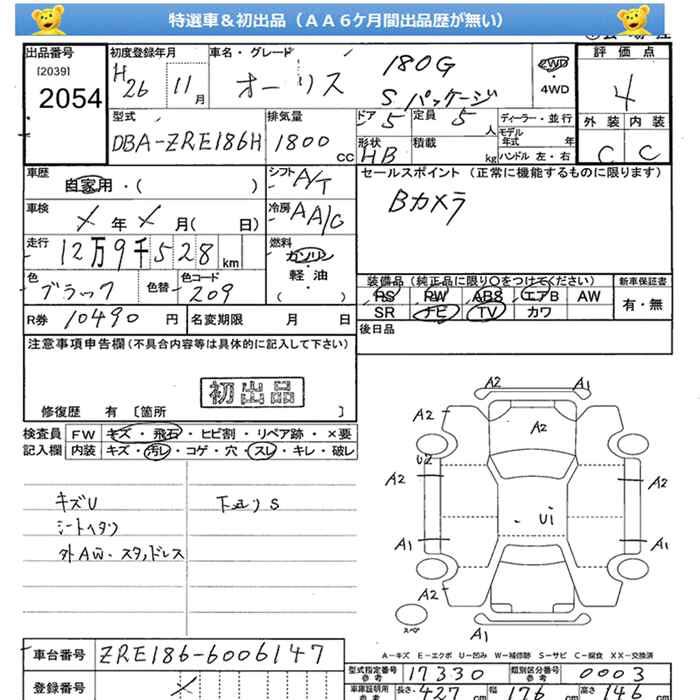 特選車＆初出品（ＡＡ６ケ月間出品歴が無い）
出品番号 初度登録年月 車名・グレード 評価点
[2039]
2054
H26 11月 オーリス 180G Sパッケージ 2WD・4WD 4
型式 排気量 ドア 5 定員 5人 ディーラー・並行 外装 内装
DBA-ZRE186H 1800cc 形状 HB 積載 kg モデル年式 年 ハンドル 左・右 C C
車歴 自家用・( ) シフト A/T セールスポイント（正常に機能するものに限ります）
車検 X年X月( 日) 冷房 AA/C Bカメラ
走行 12万9千528km 燃料 ガソリン・軽・油 ( )
色 ブラック 色替 色コード 209 装備品（純正品に限り〇をつけてください） 新車保証書
PS PW ABS エアB AW 有・無
SR ナビ TV カワ
R券 10490円 名変期限 月 日 後日品
注意事項申告欄(不具合内容等は具体的に記入して下さい)
初出品
修復歴 有 〔箇所 〕
検査員 FW キズ・飛石・ヒビ割・リペア跡・×要
記入欄 内装 キズ・汚レ・コゲ・穴・スレ・キレ・破レ
キズU 下廻りS
シートヘタリ
外AW・スタッドレス
A2 A1
A2 A2 A2
U2
A2 A2
Ui
A1 A1
A2
スペア
A1
A-キズ E-エクボ U-凹み W-補修跡 S-サビ C-腐食 XX-交換済
車台番号 ZRE186-6006147 型式指定番号 参考 17330 類別区分番号 参考 0003
登録番号 X 車庫証明用 参考 長さ 427cm 幅 176cm 高さ 146cm